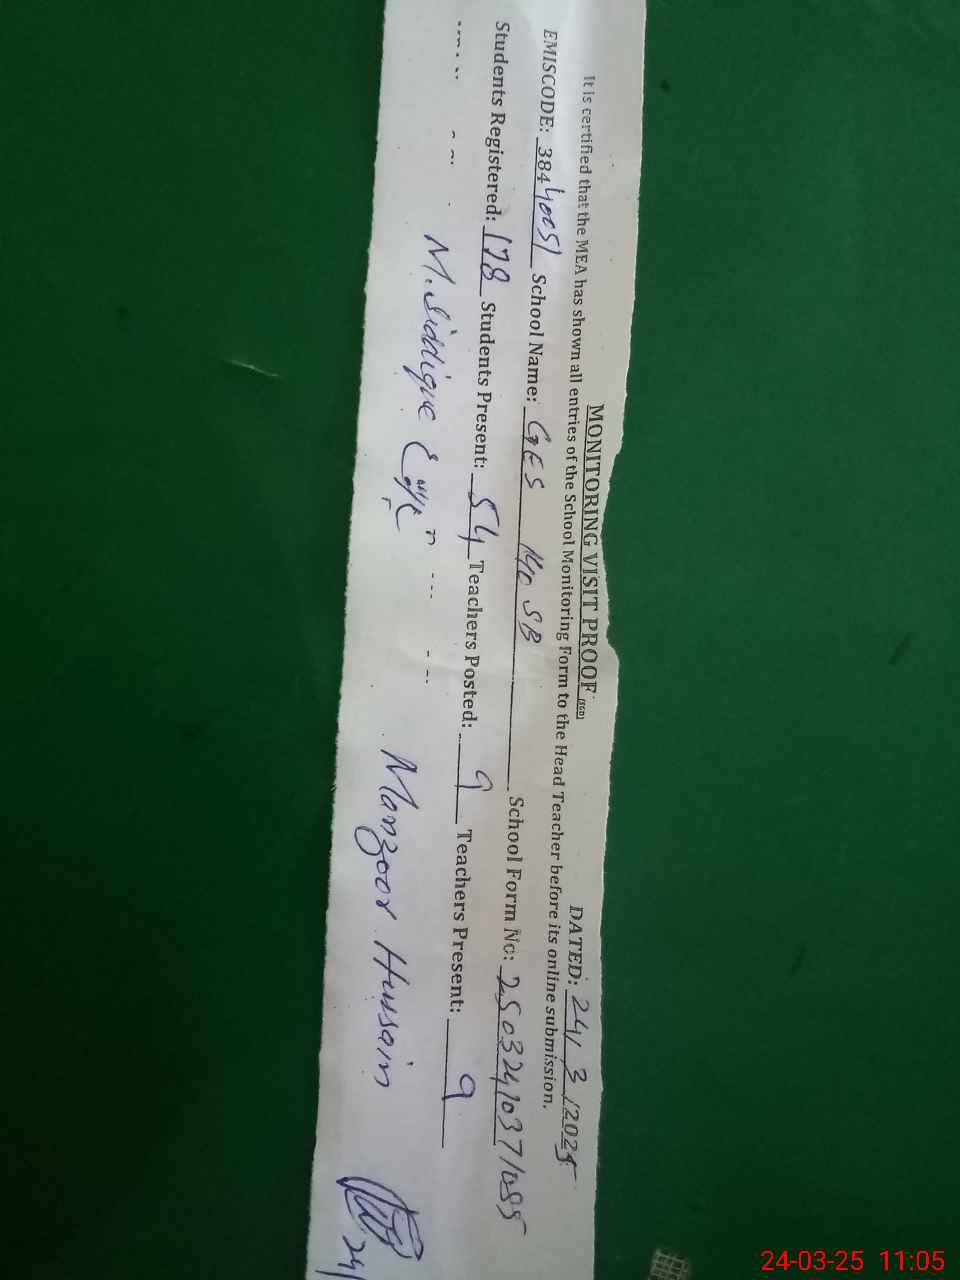 MONITORING VISIT PROOF (SGD) DATED: 24/3/2025
It is certified that the MEA has shown all entries of the School Monitoring Form to the Head Teacher before its online submission.
EMISCODE: 38440051 School Name: GES 140 SB School Form No: 25032410371085
Students Registered: 178 Students Present: 54 Teachers Posted: 9 Teachers Present: 9
M. Siddique Manzoor Hussain
24-03-25 11:05